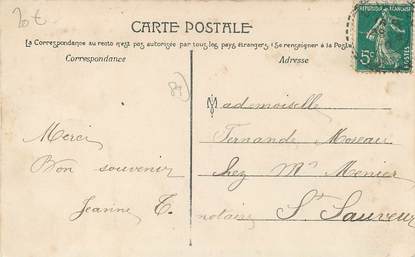 20t
CARTE POSTALE
La Correspondance au recto n'est pas autorisée par tous les pays étrangers (Se renseigner à la Poste)
Correspondance
Adresse
REPUBLIQUE FRANÇAISE
5c
POSTES
Mademoiselle
Fernande Moreau
Chez Mr Menier
notaire St Sauveur
Merci
Bon souvenir
Jeanne T.